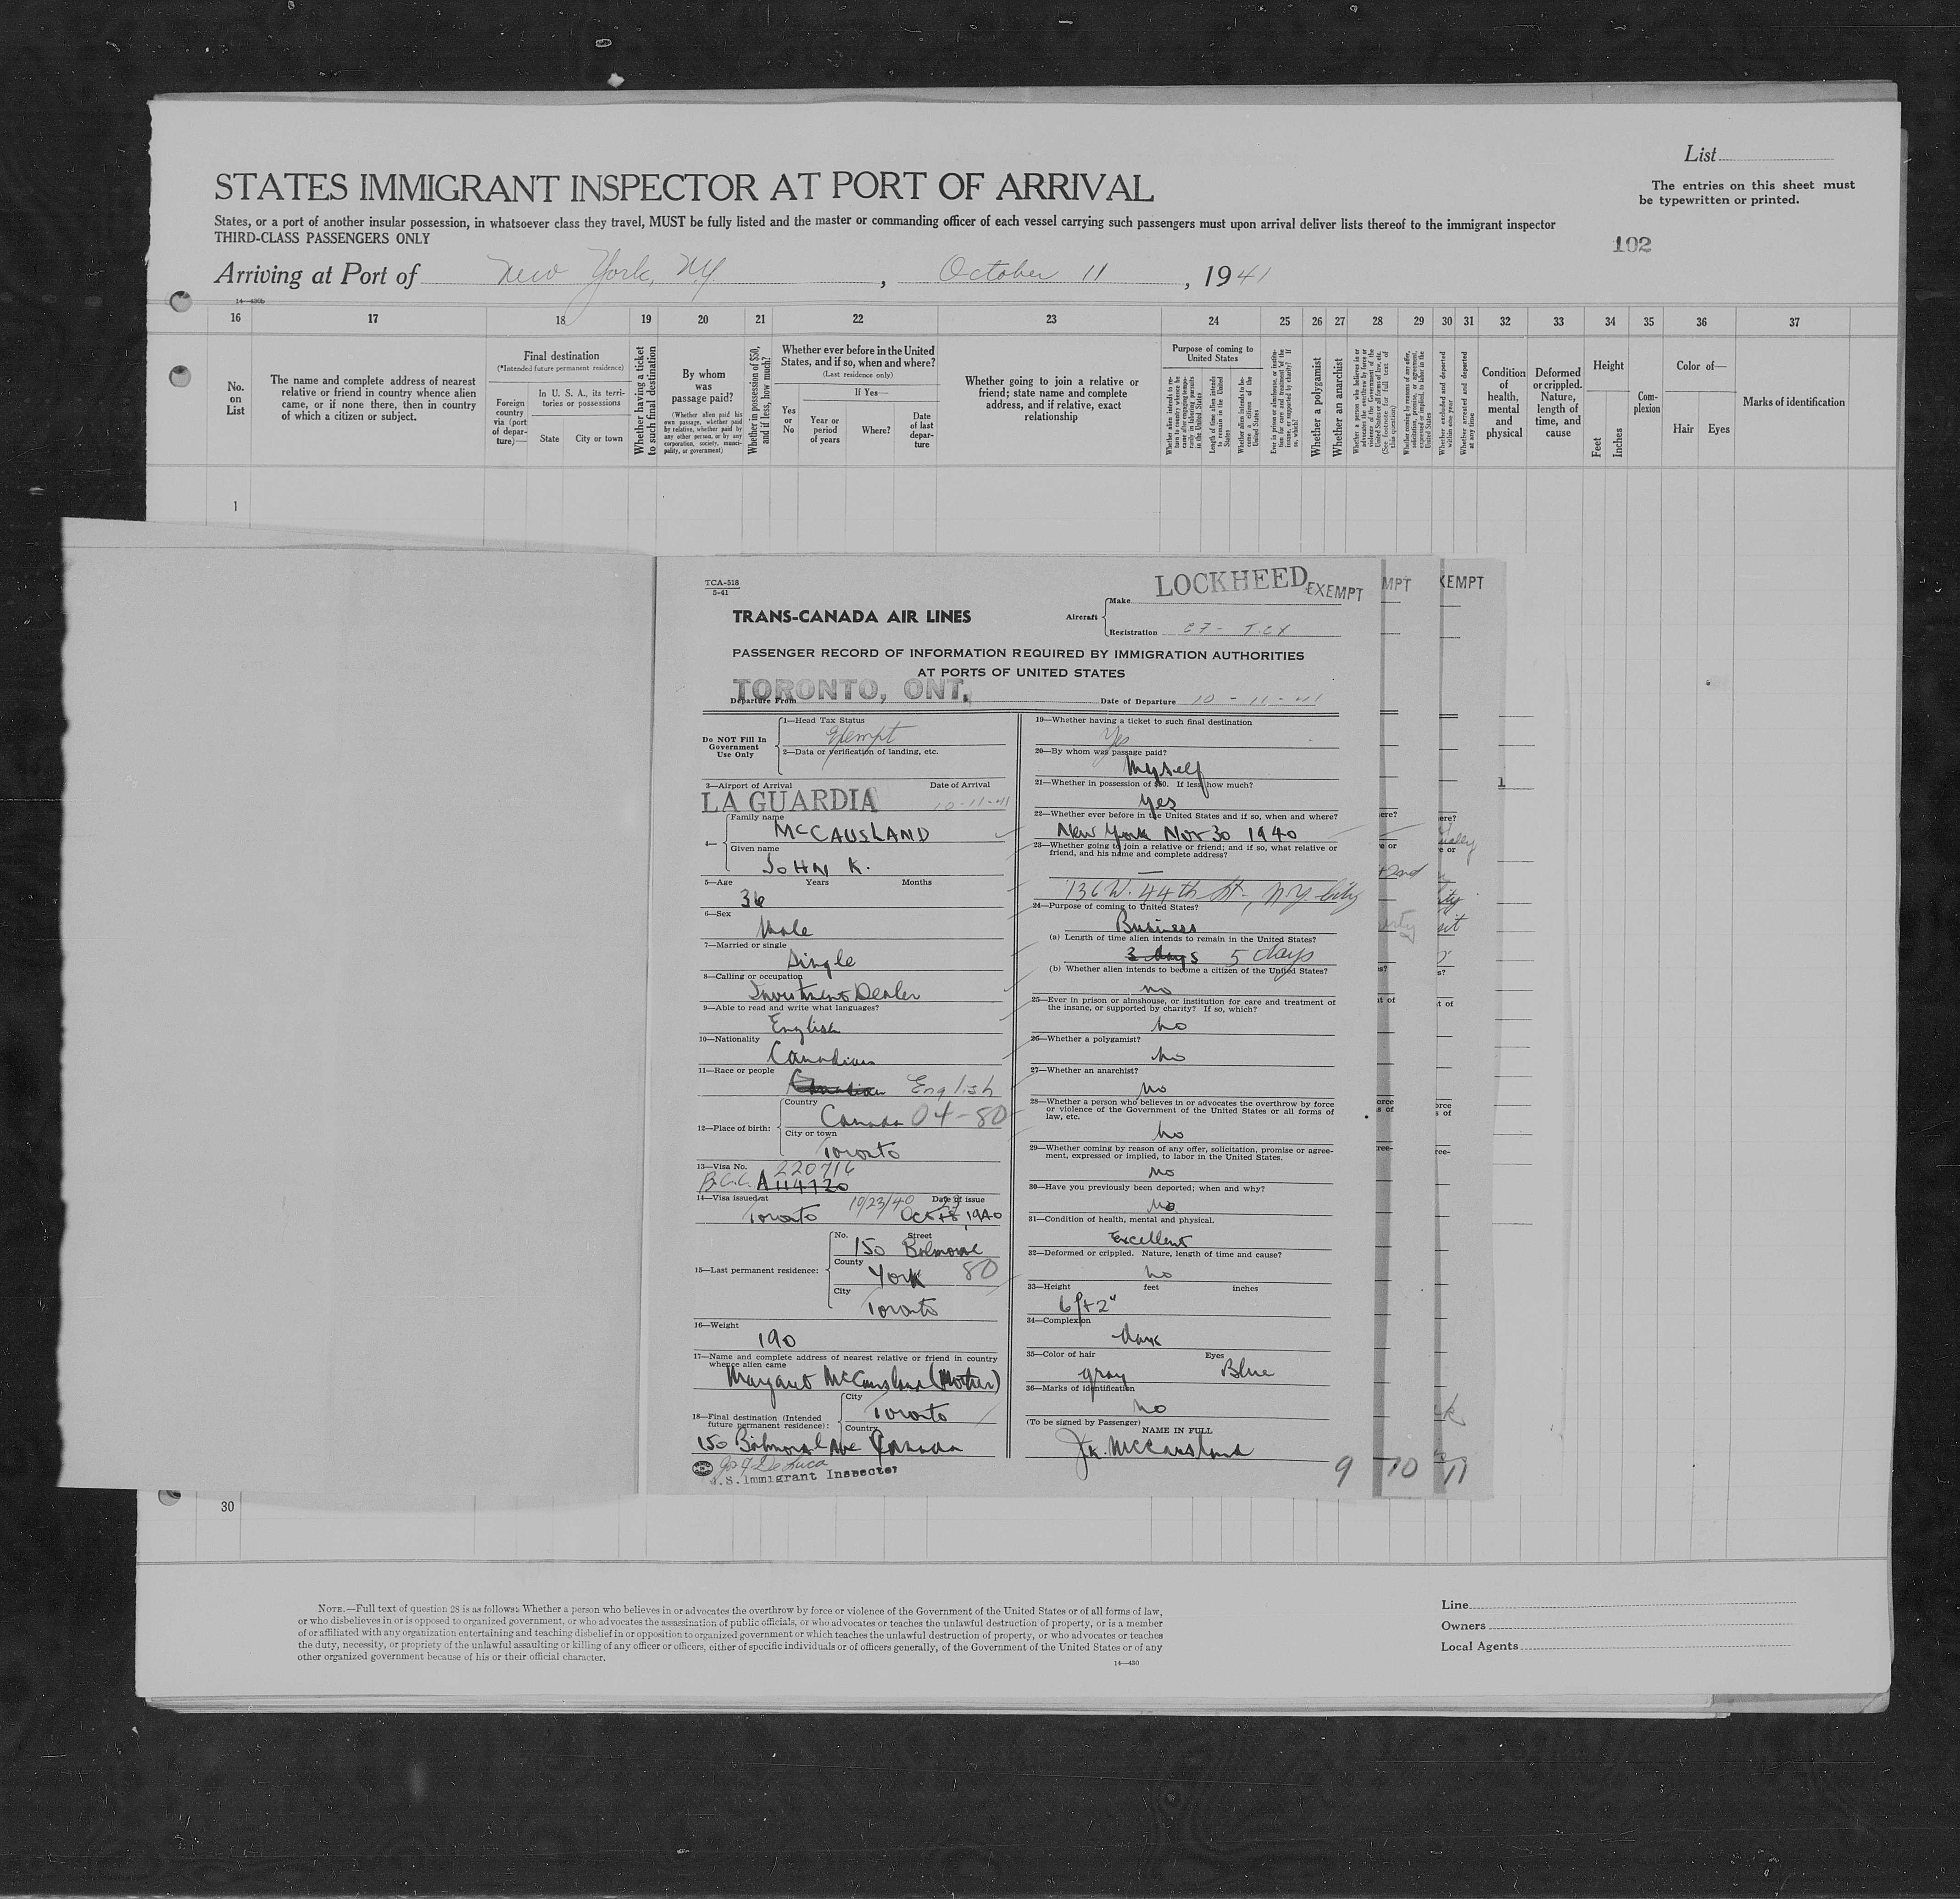 List
STATES IMMIGRANT INSPECTOR AT PORT OF ARRIVAL
The entries on this sheet must
be typewritten or printed.
States, or a port of another insular possession, in whatsoever class they travel, MUST be fully listed and the master or commanding officer of each vessel carrying such passengers must upon arrival deliver lists thereof to the immigrant inspector
THIRD-CLASS PASSENGERS ONLY
102
Arriving at Port of New York, N.Y. , October 11 , 1941
16 17 18 19 20 21 22 23 24 25 26 27 28 29 30 31 32 33 34 35 36 37
No. on List
The name and complete address of nearest relative or friend in country whence alien came, or if none there, then in country of which a citizen or subject.
Final destination
(*Intended future permanent residence)
Foreign country via (port of departure)—
In U. S. A., its territories or possessions
State
City or town
Whether having a ticket to such final destination
By whom was passage paid?
(Whether alien paid his own passage, whether paid by relative, whether paid by any other person, or by any corporation, society, municipality, or government)
Whether in possession of $50, and if less, how much?
Whether ever before in the United States, and if so, when and where?
(Last residence only)
If Yes—
Yes or No
Year or period of years
Where?
Date of last departure
Whether going to join a relative or friend; state name and complete address, and if relative, exact relationship
Purpose of coming to United States
Length of time alien intends to remain in the United States
Whether alien intends to become a citizen of the United States
Whether a polygamist
Whether an anarchist
Whether excluded and deported within one year
Whether arrested and deported at any time
Condition of health, mental and physical
Deformed or crippled. Nature, length of time, and cause
Height
Feet
Inches
Complexion
Color of—
Hair
Eyes
Marks of identification
1
TCA-518
5-41
LOCKHEED
EXEMPT
MPT
XEMPT
TRANS-CANADA AIR LINES
Aircraft
Make
Registration
PASSENGER RECORD OF INFORMATION REQUIRED BY IMMIGRATION AUTHORITIES
AT PORTS OF UNITED STATES
TORONTO, ONT.
Departure From
Date of Departure 10-11-41
Do NOT Fill In
Government
Use Only
1—Head Tax Status
Exempt
2—Data or verification of landing, etc.
3—Airport of Arrival Date of Arrival
LA GUARDIA 10-11-41
4— Family name
McCAUSLAND
Given name
JOHN K.
5—Age Years Months
36
6—Sex
Male
7—Married or single
Single
8—Calling or occupation
Investment Dealer
9—Able to read and write what languages?
English
10—Nationality
Canadian
11—Race or people
Canadian English
12—Place of birth:
Country
Canada 04-80
City or town
Toronto
13—Visa No. 220716
B.C.C. A114720
14—Visa issued at 10/23/40 Date of issue
Toronto Oct 1940
15—Last permanent residence:
No. Street
150 Balmoral
County
York 80
City
Toronto
16—Weight
190
17—Name and complete address of nearest relative or friend in country
whence alien came
Margaret McCausland (Mother)
18—Final destination (Intended
future permanent residence):
City
Toronto
Country
150 Balmoral Ave Canada
U.S. Immigrant Inspector
19—Whether having a ticket to such final destination
Yes
20—By whom was passage paid?
Myself
21—Whether in possession of $50. If less how much?
Yes
22—Whether ever before in the United States and if so, when and where?
New York Nov 30 1940
23—Whether going to join a relative or friend; and if so, what relative or
friend, and his name and complete address?
136 W. 44th St., N.Y. City
24—Purpose of coming to United States?
Business
(a) Length of time alien intends to remain in the United States?
3 days 5 days
(b) Whether alien intends to become a citizen of the United States?
no
25—Ever in prison or almshouse, or institution for care and treatment of
the insane, or supported by charity? If so, which?
No
26—Whether a polygamist?
No
27—Whether an anarchist?
No
28—Whether a person who believes in or advocates the overthrow by force
or violence of the Government of the United States or all forms of
law, etc.
No
29—Whether coming by reason of any offer, solicitation, promise or agreement, expressed or implied, to labor in the United States.
No
30—Have you previously been deported; when and why?
No
31—Condition of health, mental and physical.
Excellent
32—Deformed or crippled. Nature, length of time and cause?
No
33—Height feet inches
6ft 2"
34—Complexion
dark
35—Color of hair Eyes
gray Blue
36—Marks of identification
No
(To be signed by Passenger)
NAME IN FULL
J.K. McCausland
9 10 11
30
NOTE.—Full text of question 28 is as follows: Whether a person who believes in or advocates the overthrow by force or violence of the Government of the United States or of all forms of law,
or who disbelieves in or is opposed to organized government, or who advocates the assassination of public officials, or who advocates or teaches the unlawful destruction of property, or is a member
of or affiliated with any organization entertaining and teaching disbelief in or opposition to organized government or which teaches the unlawful destruction of property, or who advocates or teaches
the duty, necessity, or propriety of the unlawful assaulting or killing of any officer or officers, either of specific individuals or of officers generally, of the Government of the United States or of any
other organized government because of his or their official character.
14—430
Line
Owners
Local Agents